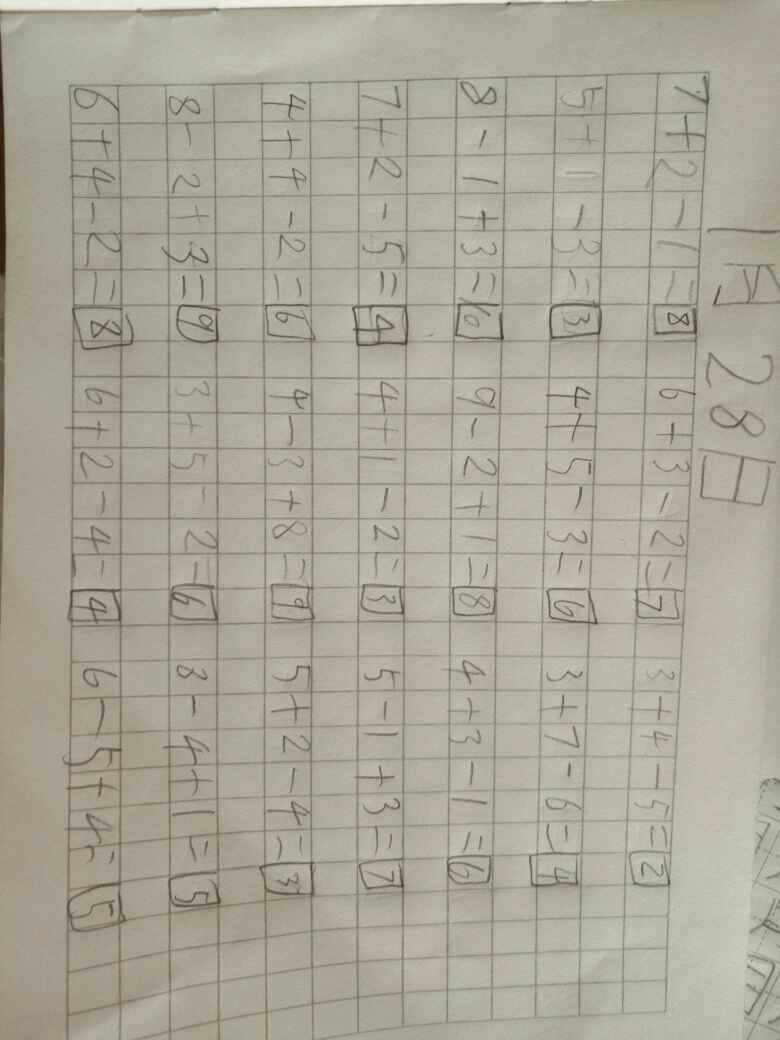 1月28日
7+2-1=8 6+3-2=7 3+4-5=2
5+1-3=3 4+5-3=6 3+7-6=4
8-1+3=10 9-2+1=8 4+3-1=6
7+2-5=4 4+1-2=3 5-1+3=7
4+4-2=6 4-3+8=9 5+2-4=3
8-2+3=9 3+5-2=6 8-4+1=5
6+4-2=8 6+2-4=4 6-5+4=5